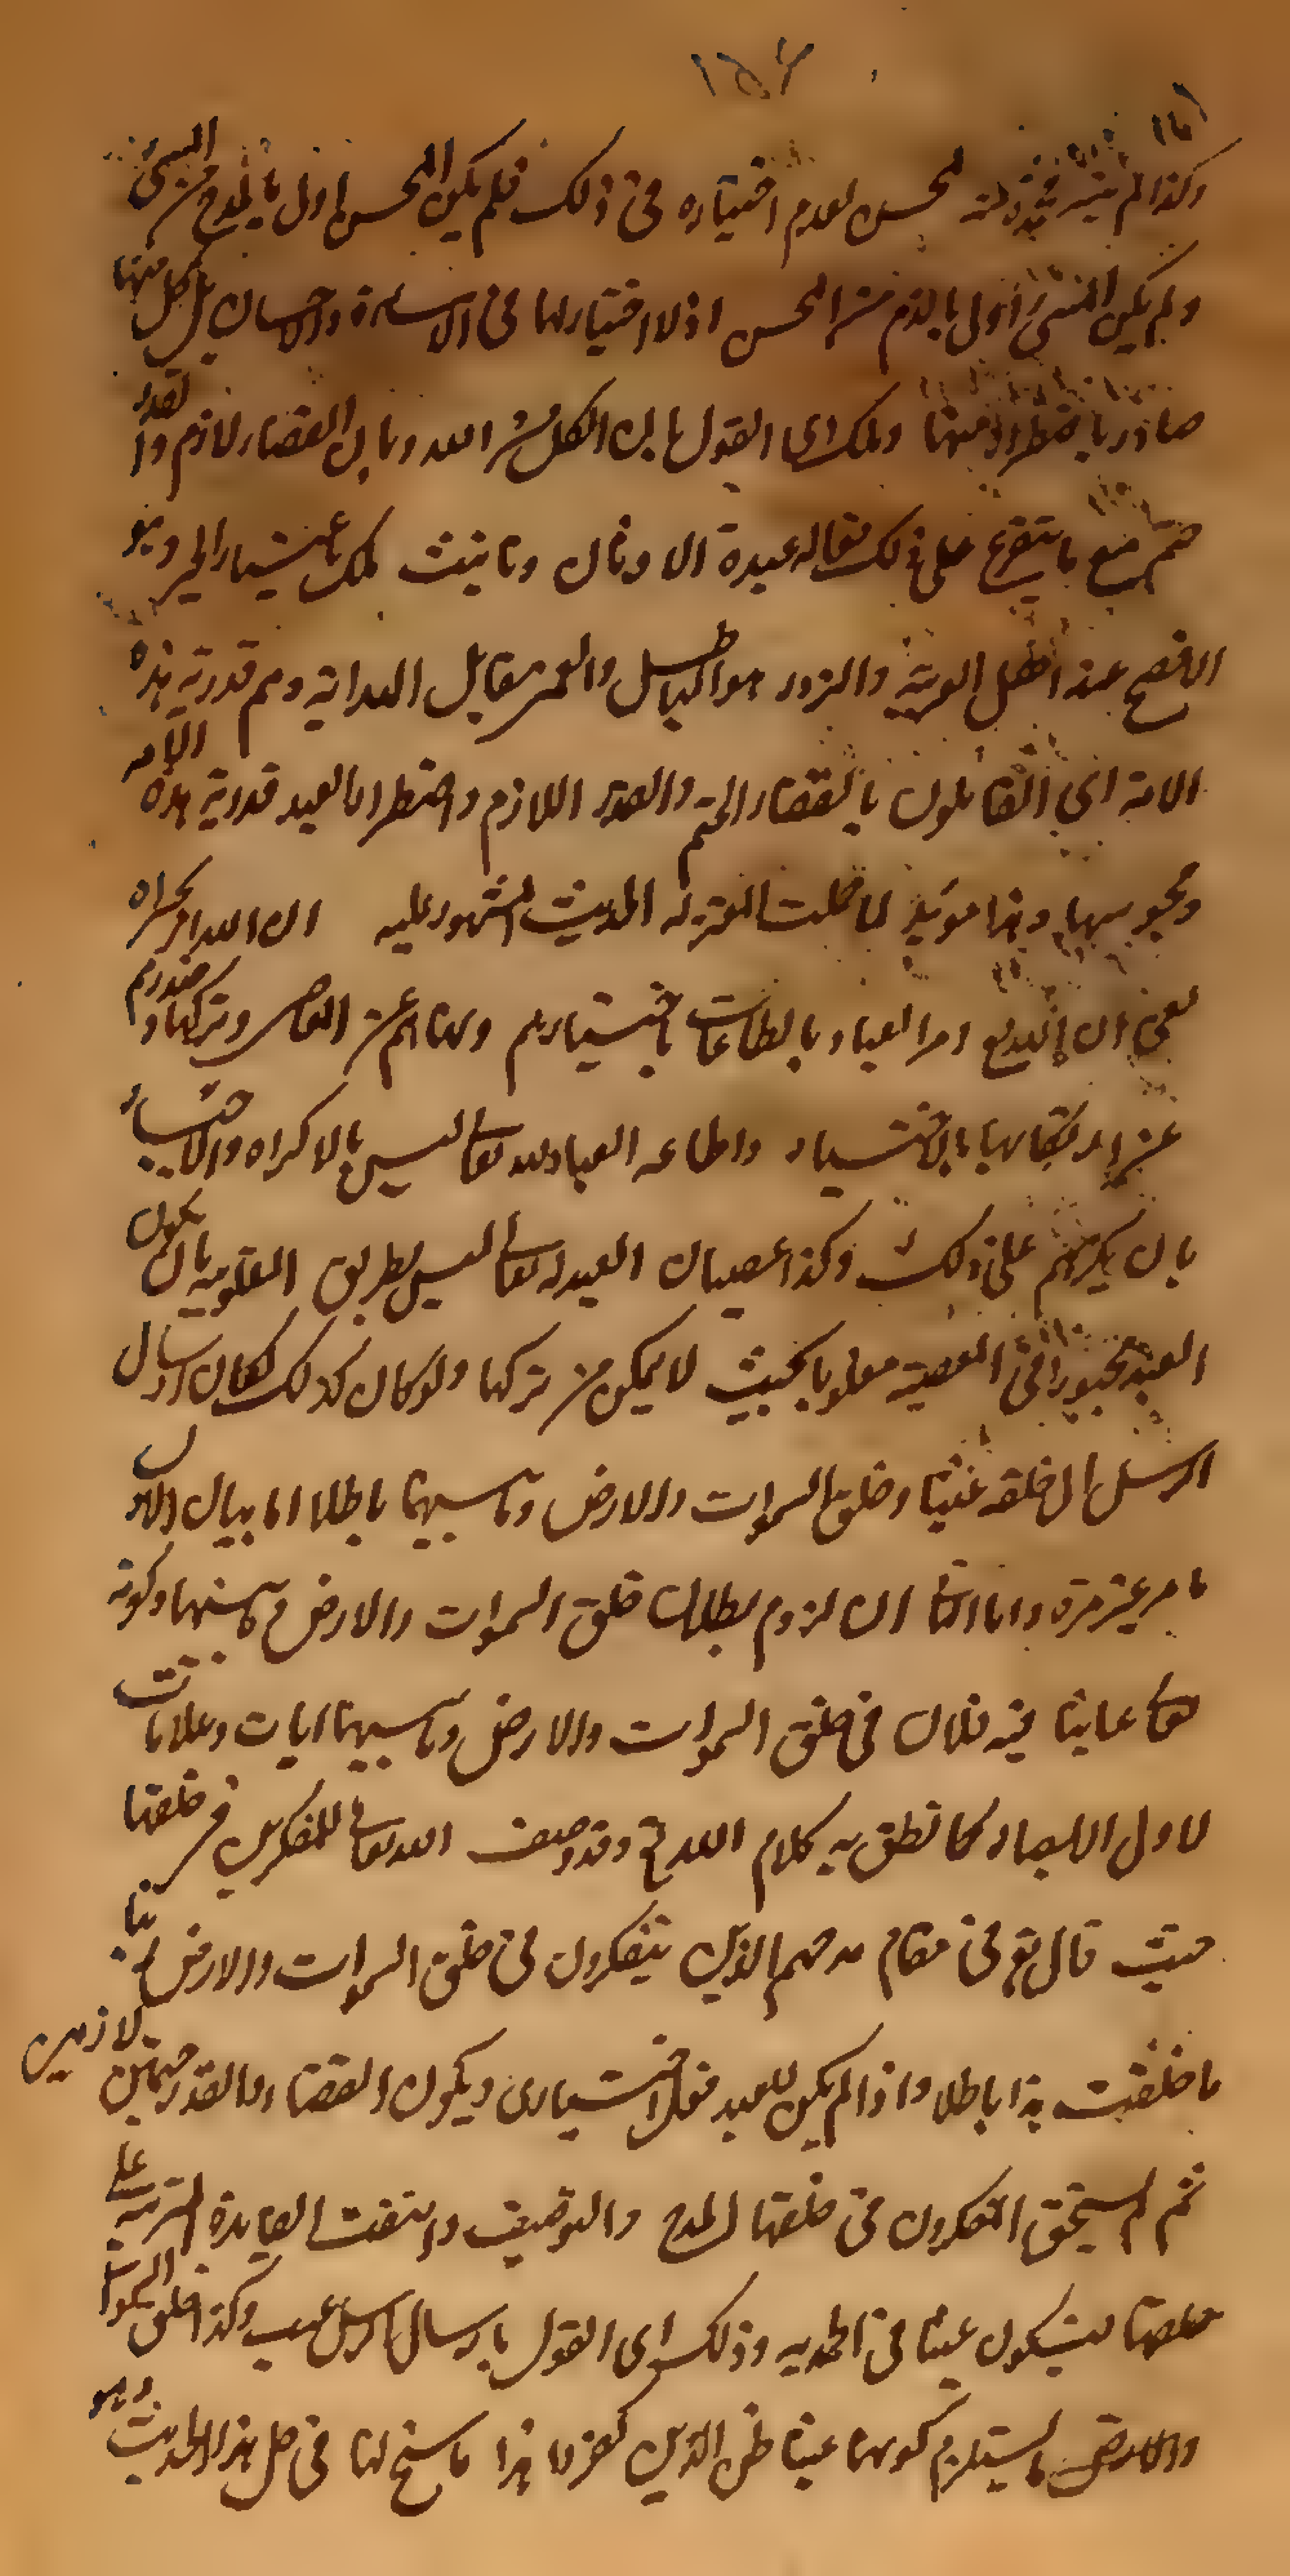 ١٥٢
وكذا لم محسن لعدم اختياره فى ذلك فلم يكن المحسن اولى بالمدح من المسئ
ولم يكن المسئ اولى بالذم من المحسن اذ لا اختيار لهما فى الاساءة والاحسان بل كل منهما
صادر باضطراد منهما وتلك اى القول بان الكل من الله وبان القضاء لازم والقدر
حتم مع ما يتفرع على ذلك مقاله عبدة الاوثان وتانيث تلك باعتبار الخبر وهو
الافصح عند اهل العربية والزور هو الباطل والعمى مقابل الهداية وهم قدرية هذه
الامة اى القائلون بالقضاء الحتم والقدر اللازم واضطرار العبد قدرية هذه الامه
ومجوسها وهذا مؤيد لما حملت المعتزله الحديث المشهور عليه ان الله امر تخييرا
يعنى ان الله تع امر العباد بالطاعات باختيارهم ونهاهم عن المعاصى وتركها وحذرهم
عن ارتكابها بالاختيار واطاعه العباد لله تعالى ليس بالاكراه والاجبار
بان يكرههم على ذلك وكذا عصيان العبد له تعالى ليس بطريق المغلوبيه بان يكون
العبد مجبورا فى المعصيه مغلوبا بحيث لا يمكن من تركها ولو كان كذلك لكان ارسال
الرسل الى خلقه عبثا وخلق السموات والارض وما بينهما باطلا اما بيان الاول
مامر غير مرة واما الثانى ان لزوم بطلان خلق السموات والارض وما بينهما وكونه
تعالى عابثا فيه فلان فى خلق السموات والارض وما بينهما ايات وعلامات
لاولى الابصار كما نطق به كلام الله تع وقد وصف الله تعالى للمفكرين فى خلقها
حيث قال تع فى مقام مدحهم الذين يتفكرون فى خلق السموات والارض ربنا
ما خلقت هذا باطلا واذا لم يكن للعبد فعل اختيارى ويكون القضاء والقدر حتمين لازمين
ثم لم يستحق المفكرون فى خلقها المدح والتوصيف وانتفت الفايدة المترتبه على
خلقها فيكون عبثا فى الحديه وذلك اى القول بارسال الرسل عبث وكذا خلق السموات
والارض ما يستلزم كونهما عبثا ظن الذين كفروا هذا ما سنح لنا فى حل هذا الحديث وهو